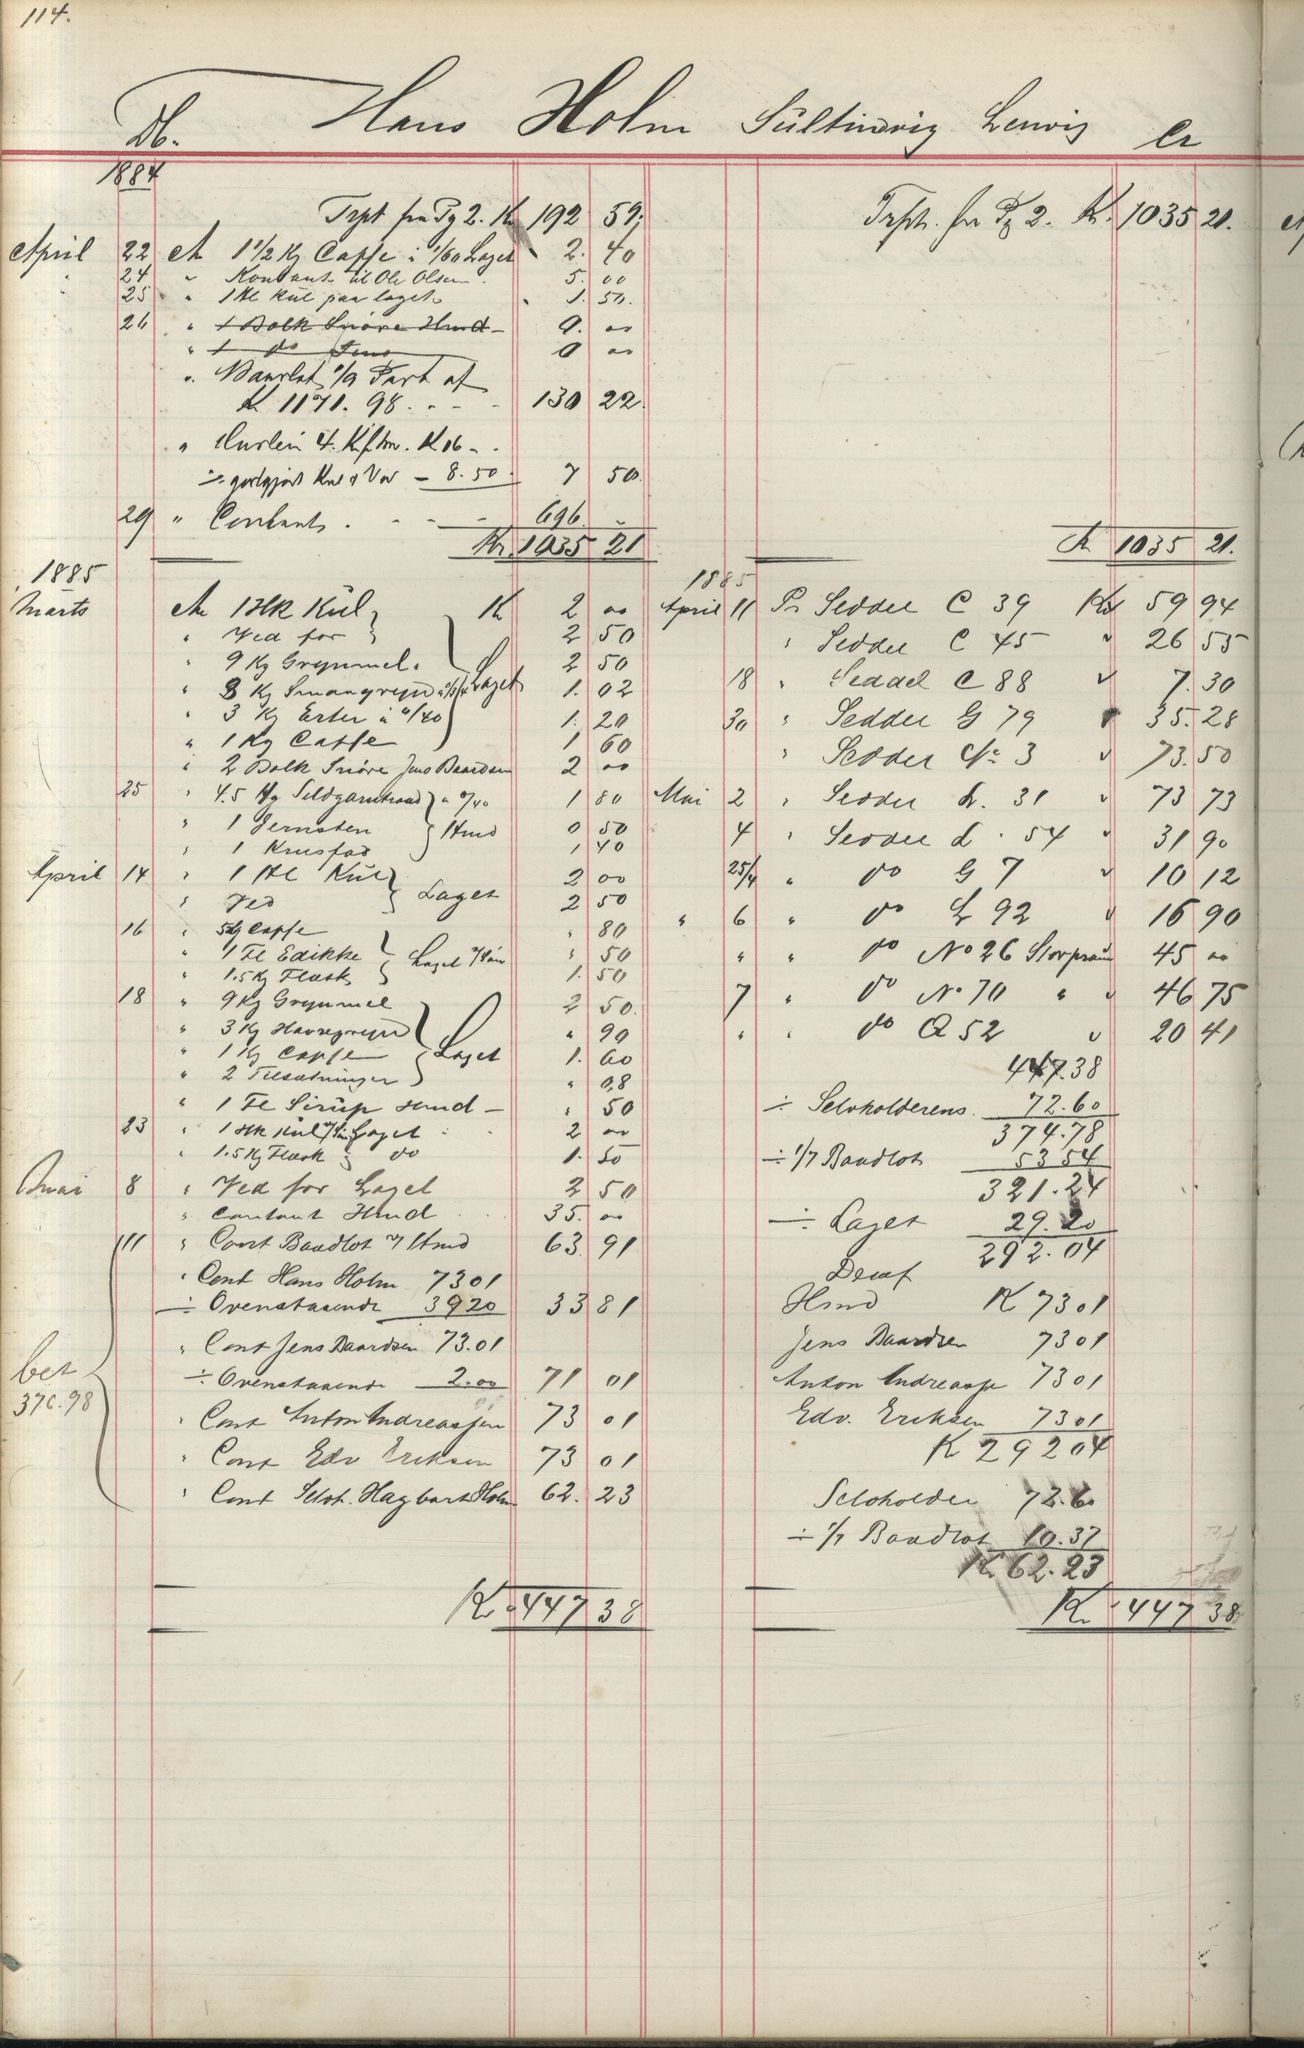 114.
Db. Hans Holm Sültindvig Lervig Cr
1884
Trpt fra Pg 2. Kr 192 59.
April 22 An 1 1/2 Kg Caffe i 1/60 Laget 2. 40
" 24 " Kontant til Ole Olsen. 5. 00
" 25 " 1 Hl kul paa laget. 1. 50.
26 " 1 Balk Snöre Hmd - 0. 00
" 1 do Jens 0 00
" Baadlot 1/9 Part af
Kr 1171. 98. . - - 130 22.
" Husleie 4.
÷ godtgjort Kul & Ved - 8.50. 7 50
29 " Contant . - - - 696. -
Kr. 1035 21
1885
Marts An 1 Hk Kül K 2 00
" Ved for 2 50
" 9 Kg Grynmel. 2 50
" 3 Kg Smaagryn Laget 1. 02
" 3 Kg Erter à "/40 1. 20
" 1 Kg Caffe 1 60
" 2 Balk Snöre Jens Baardsen 2 00
25 " 4.5 Kg Sildgarntraad à "/40 1 80
" 1 Jernsten Hmd 0 50
" 1 Krusfad 1 40
April 14 " 1 Hl Kül 2 00
" Ved Laget 2 50
16 " Caffe " 80
" 1 Fl Edikke Laget " 50
" 1.5 Kg Flæsk 1. 50
18 " 9 Kg Grynmel 2 50.
" 3 Kg Havregryn " 90
" 1 Kg Caffe Laget 1. 60
" 2 Tilsætninger " 0,8
" 1 Fl Sirüp Hmd - " 50
23 " 1 Hk Kül Laget 2 00
" 1.5 Kg Flæsk do 1. 50
Mai 8 " Ved for Laget 2 50
" Contant Hmd 35. 00
11 " Cont Baadlot Hmd 63. 91
" Cont Hans Holm 7301
÷ Ovenstaaende 3920 33 81
" Cont Jens Baardsen 73.01
÷ Ovenstaaende 2.00 71 01
bet
376.98
" Cont Anton Andreassen 73 01
" Cont Edv Eriksen 73 01
" Cont Selvh. Hagbart Holm 62. 23
Kr. 447 38
Trpt. fra Pg 2. Kr. 1035 21.
Kr 1035 21.
1885
April 11 Pr Seddel C 39 Kr 59 94
" Seddel C 45 " 26 55
18 " Seddel C 88 " 7. 30
30 " Seddel G 79 35. 28
" Seddel No 3 " 73. 50
Mai 2 " Seddel L. 31 " 73 73
4 " Seddel L. 54 " 31 90
25/4 " do G 7 " 10 12
" 6 " do L 92 " 16 90
" " do No 26 45 00
7 " do No 70 " " 46 75
" " do Q 52 " 20 41
447.38
÷ Selvholderens 72.60
374.78
÷ 1/7 Baadlot 53 54
321.24
÷ Laget 29.20
292.04
Deraf
Hmd K 7301
Jens Baardsen 7301
Anton Andreasse 7301
Edv. Eriksen 7301
K 29204
Selvholder 72.60
÷ 1/7 Baadlot 10.37
Kr 62.23
Kr. 447 38